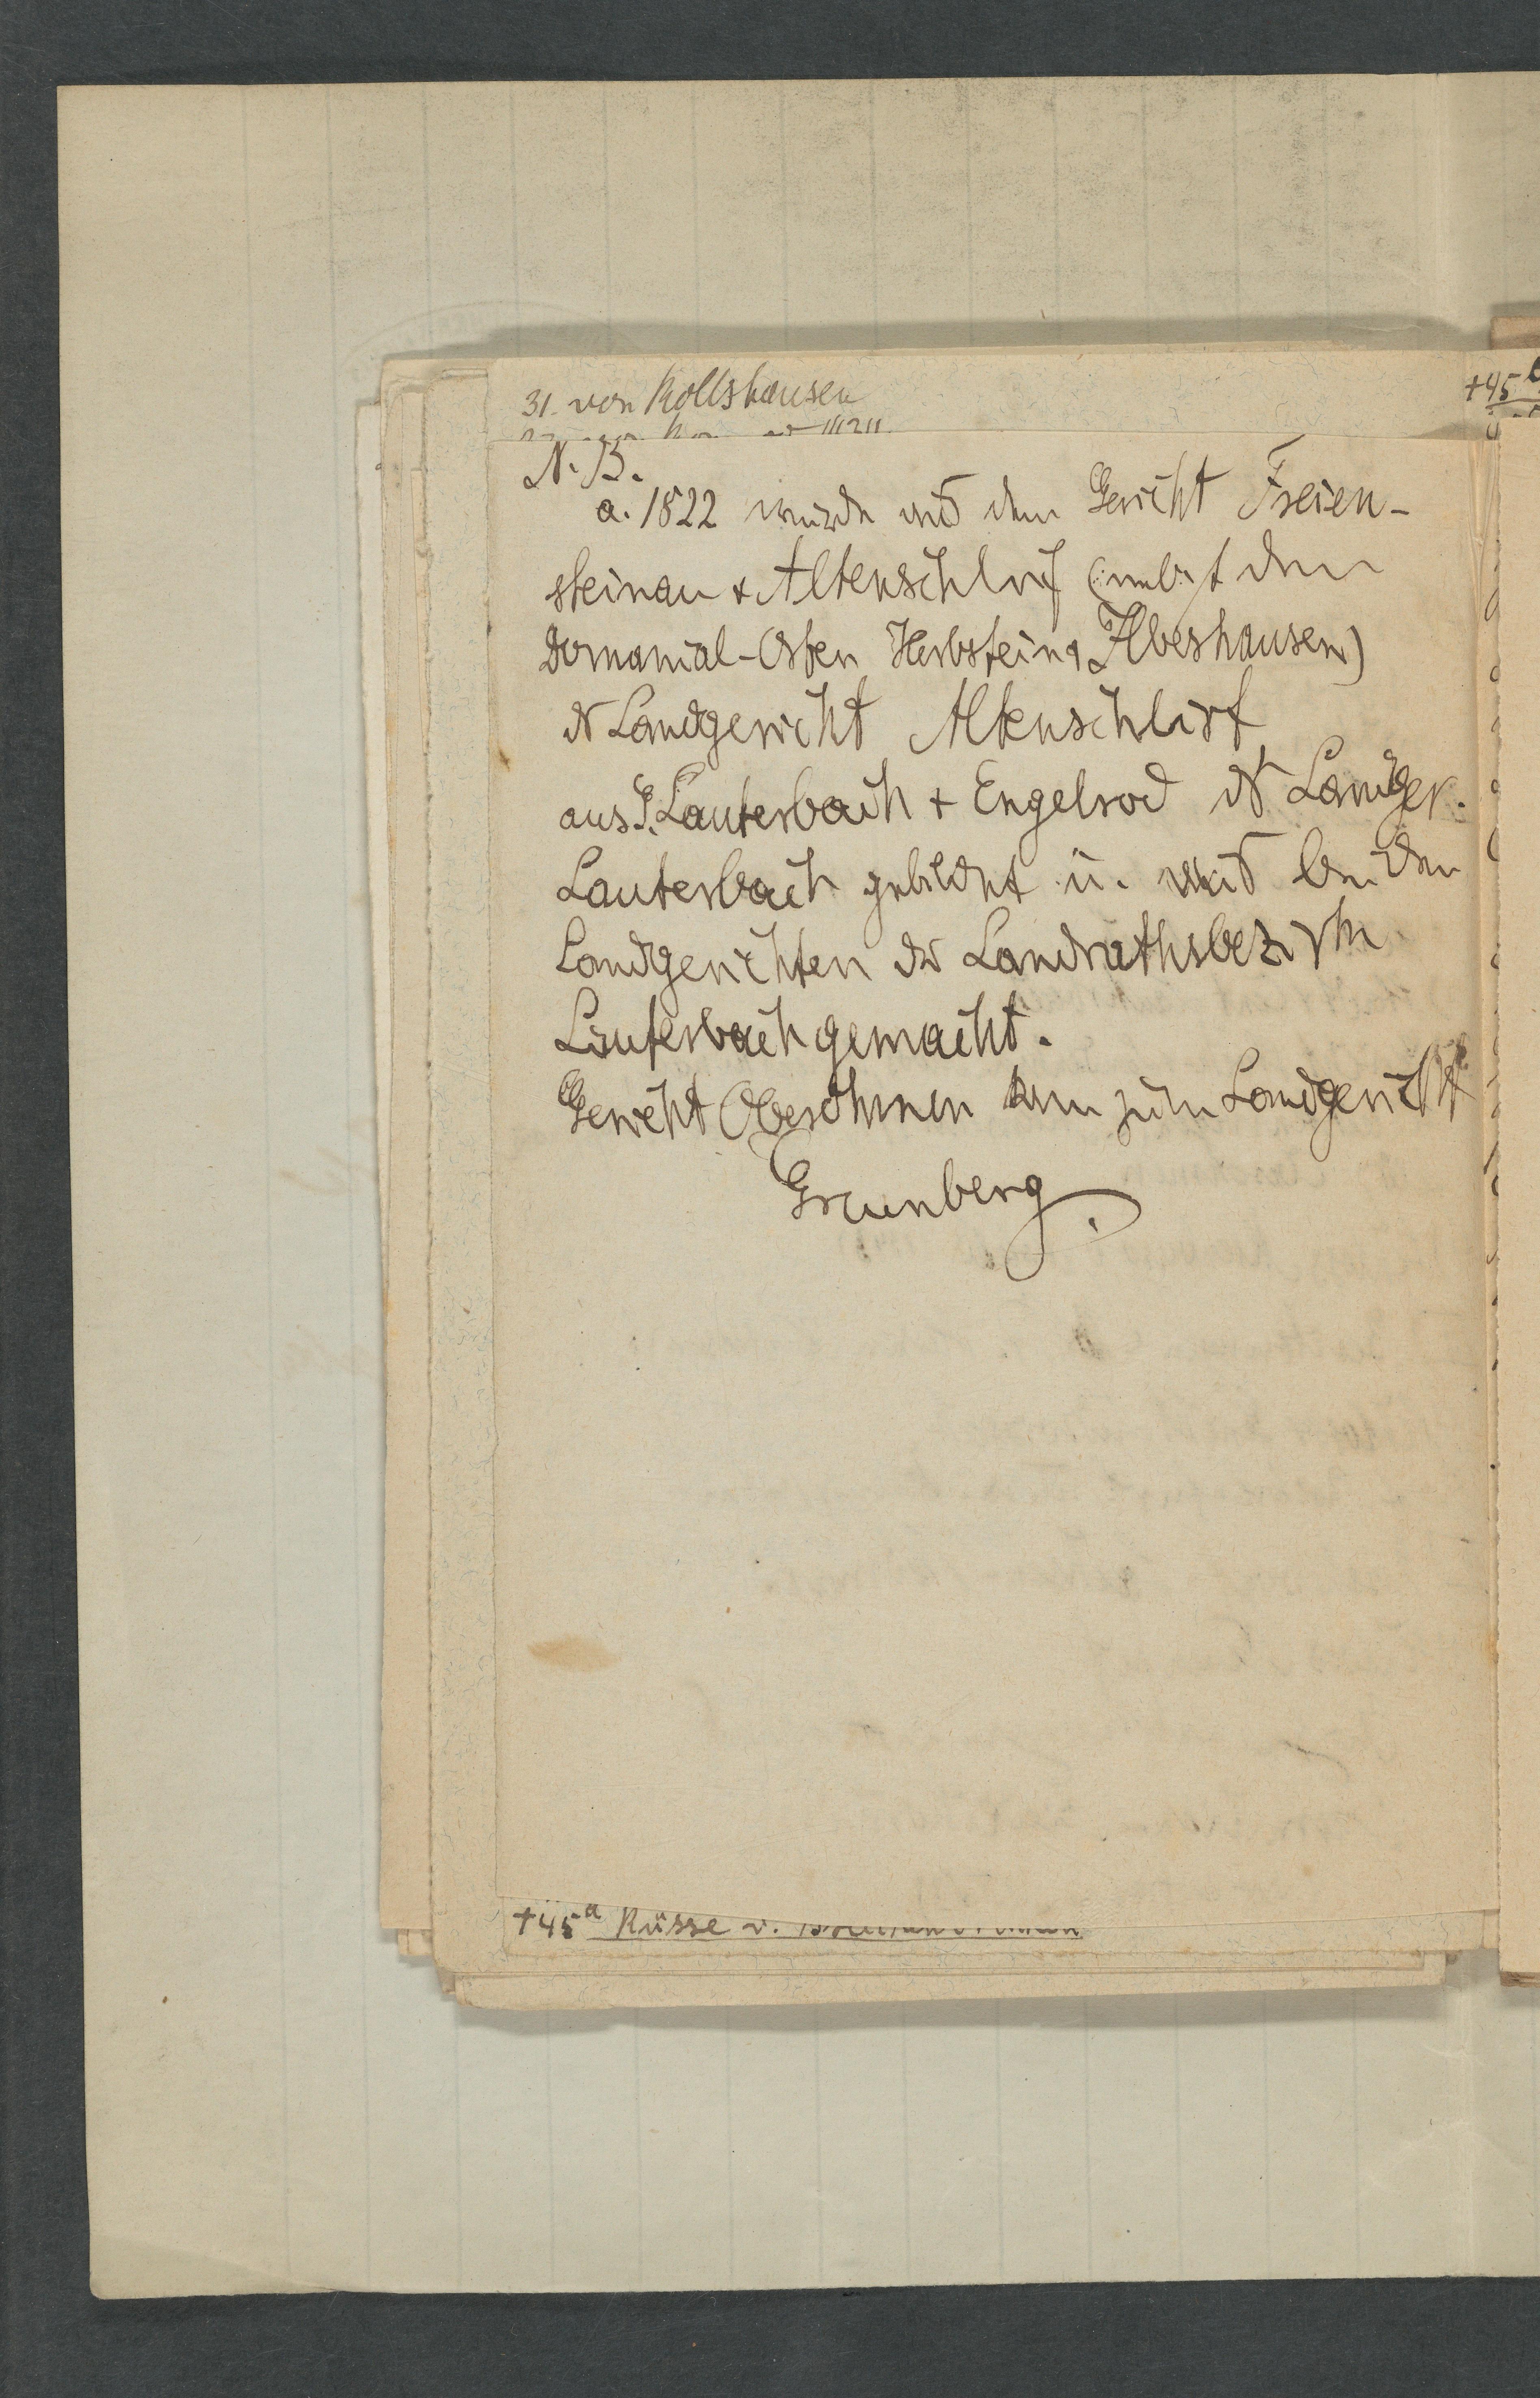 31. von Rollshausen
N. B.
a. 1822 wurde aus dem Gericht Freien-
steinau & Altenschlirf (nebst den
Domanial-Orten Herbstein & Ilbeshausen)
d Landgericht Altenschlirf
aus G. Lauterbach + Engelrod d Landger.
Lauterbach gebildet u. aus beiden
Landgerichten der Landrathsbezirk
Lauterbach gemacht.
Gericht Oberohmen kam zum Landgericht
Grunberg.
+45a Küsse v.
+45